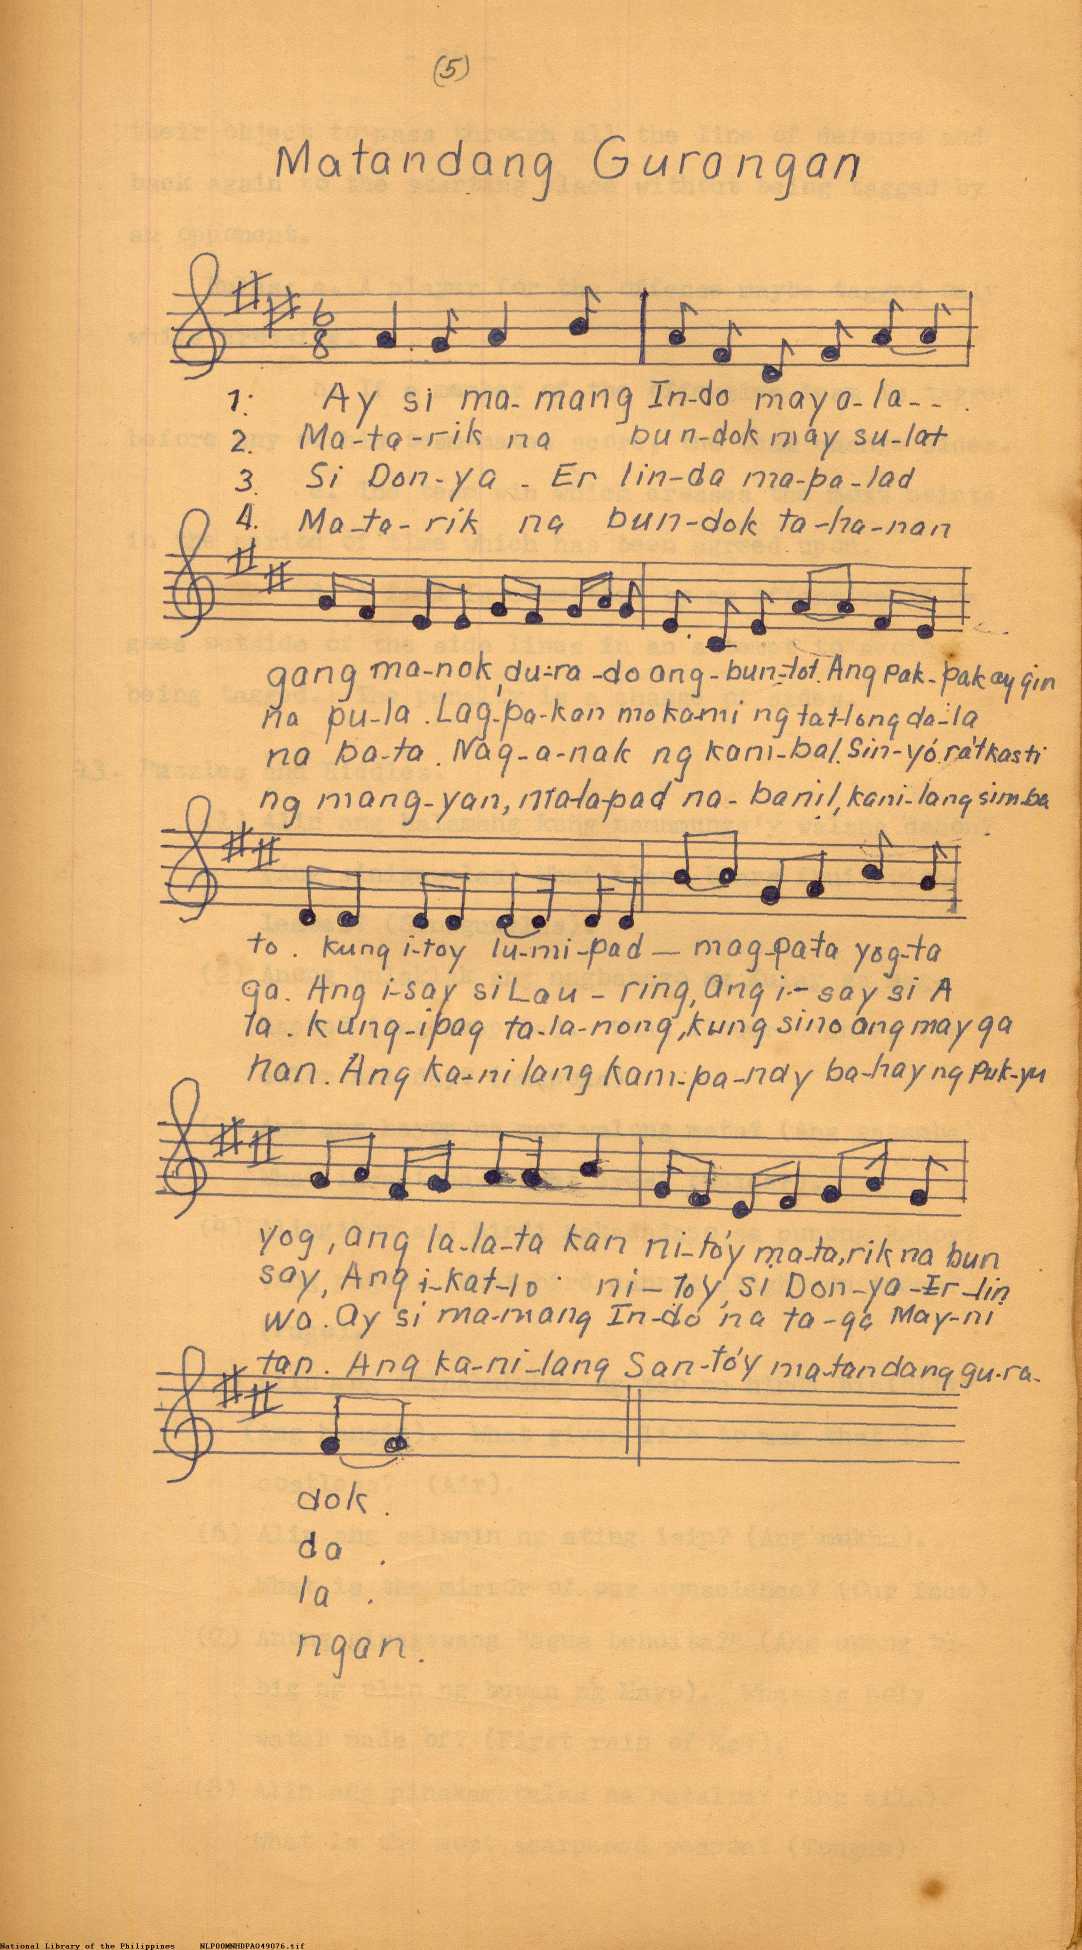 (5)
Matandang Gurongan
6
8
1. Ay si ma- mang In-do may a-la--.
2. Ma-ta-rik na bun-dok may su-lat
3. Si Don-ya - Er lin-da ma-pa-lad
4. Ma-ta-rik na bun-dok ta-ha-nan
gang ma-nok, du-ra-do ang-bun-tot. Ang pak-pak ay gin
na pu-la. Lag-pa-kan mo ka-mi ng tat-long da-la
na ba-ta. Nag-a-nak ng kam-bal. Sin-yó ra't kasti
ng mang-yan, ma-la-pad na-banil, kani-lang sim-ba
to. kung i-toy lu-mi-pad — mag-pa-ta yog-ta
ga. Ang i-say si Lau-ring, Ang i-say si A
la. kung-ipag ta-la-nong, kung sino ang may ga
han. Ang ka-ni lang kam-pa-nay ba-hay ng puk-yu
yog, ang la-la-ta kan ni-tó'y ma-ta, rik na bun
say, Ang i-kat-lo ni-toy, si Don-ya-Er-lin
wa. Ay si ma-mang In-do na ta-ga May-ni
tan. Ang ka-ni-lang San-tó'y ma-tandang gu-ra-
dok.
da.
la.
ngan.
National Library of the Philippines NLPOOMNHDPA049076.tif